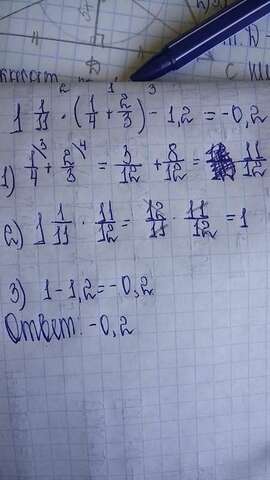 2 1 3
1 1/11 · (1/4 + 2/3) - 1,2 = -0,2
1) 1/4 + 2/3 = 3/12 + 8/12 = 11/12
2) 1 1/11 · 11/12 = 12/11 · 11/12 = 1
3) 1 - 1,2 = -0,2
Ответ: -0,2